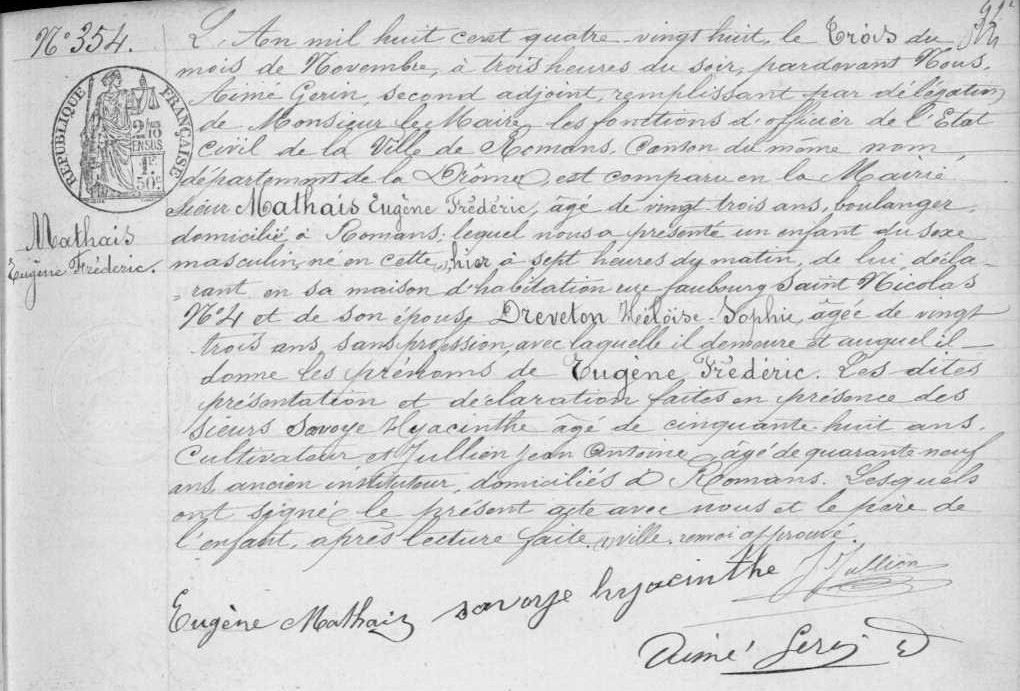 N° 354.
L'An mil huit cent quatre-vingt huit, le Trois du
mois de Novembre, à trois heures du soir, pardevant Nous,
Aimé Gerin, second adjoint, remplissant par délégation
de Monsieur le Maire, les fonctions d'officier de l'Etat
civil de la Ville de Romans, Canton du même nom,
département de la Drôme, est comparu en la Mairie
Sieur Mathais Eugène Frédéric, âgé de vingt-trois ans, boulanger,
domicilié à Romans; lequel nous a présenté un enfant du sexe
masculin, né en cette, hier à sept heures du matin, de lui décla-
rant en sa maison d'habitation rue faubourg Saint Nicolas
N° 4 et de son épouse Dreveton Héloïse-Sophie, âgée de vingt
trois ans, sans profession, avec laquelle il demeure et auquel il
donne les prénoms de Eugène Frédéric. Les dites
présentation et déclaration faites en présence des
sieurs Savoye Hyacinthe âgé de cinquante-huit ans,
Cultivateur et Jullien Jean Antoine, âgé de quarante neuf
ans, ancien instituteur, domiciliés à Romans. Lesquels
ont signé le présent acte avec nous et le père de
l'enfant, après lecture faite. ville. renvoi approuvé.
Mathais
Eugène Fréderic.
RÉPUBLIQUE FRANÇAISE
2/10
EN SUS
1F
50c
Eugène Mathais savoye hyacinthe J Jullien
Aimé Gerin